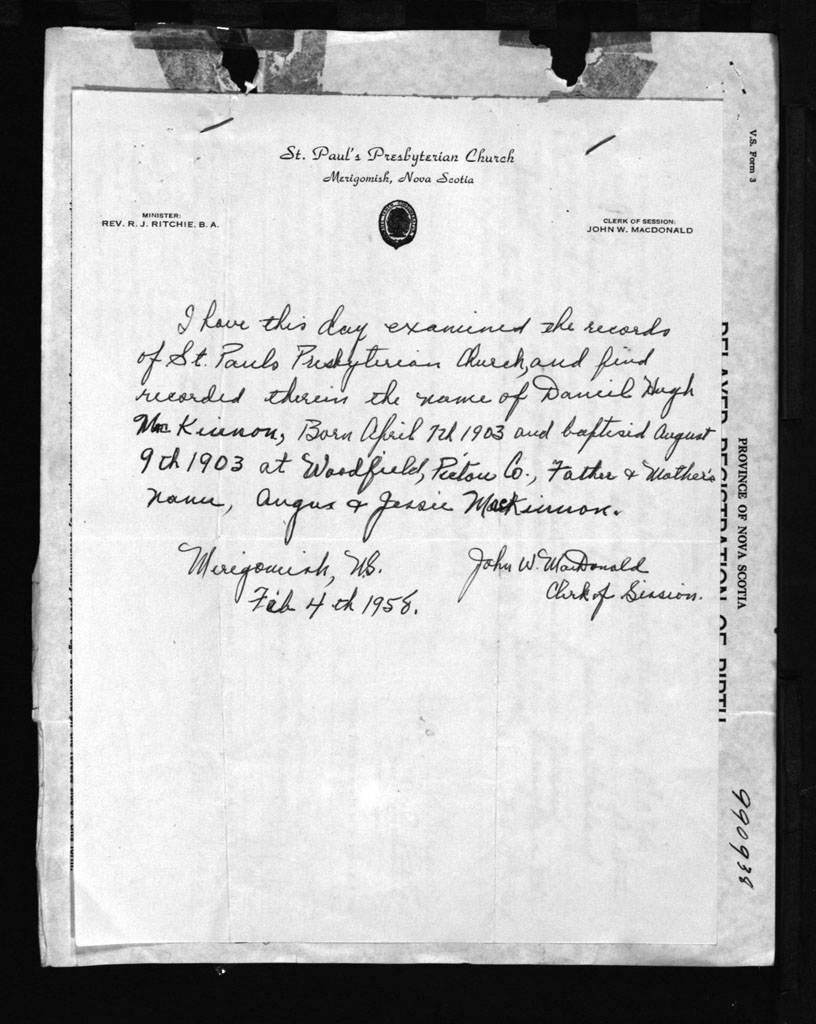 St. Paul's Presbyterian Church
Merigomish, Nova Scotia
MINISTER:
REV. R. J. RITCHIE, B. A.
CLERK OF SESSION:
JOHN W. MACDONALD
I have this day examined the records
of St. Pauls Presbyterian Church, and find
recorded therein the name of Daniel Hugh
MacKinnon, Born April 7th 1903 and baptised August
9th 1903 at Woodfield, Pictou Co., Father & Mother's
name, Angus & Jessie MacKinnon.
Merigomish, N.S.
Feb 4th 1958.
John W. MacDonald
Clerk of Session.
V.S. Form 3
PROVINCE OF NOVA SCOTIA
DELAYED REGISTRATION OF BIRTH
990938